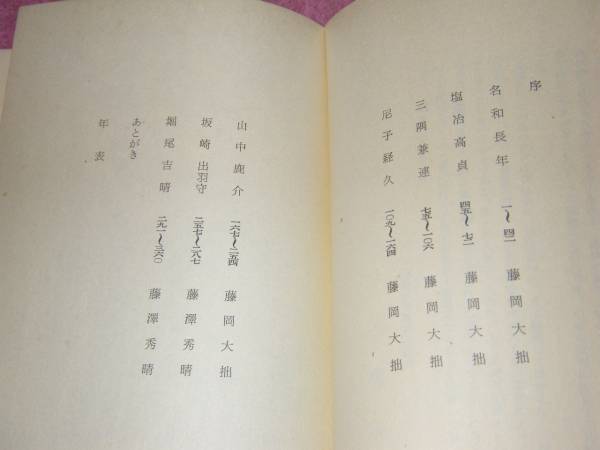 序
名和長年 一〜四一 藤岡大拙
塩冶高貞 四五〜七二 藤岡大拙
三隅兼連 七五〜一〇六 藤岡大拙
尼子経久 一〇九〜一六四 藤岡大拙
山中鹿介 一六七〜二五四 藤岡大拙
坂崎出羽守 二五七〜二八七 藤澤秀晴
堀尾吉晴 二九一〜三六〇 藤澤秀晴
あとがき
年表